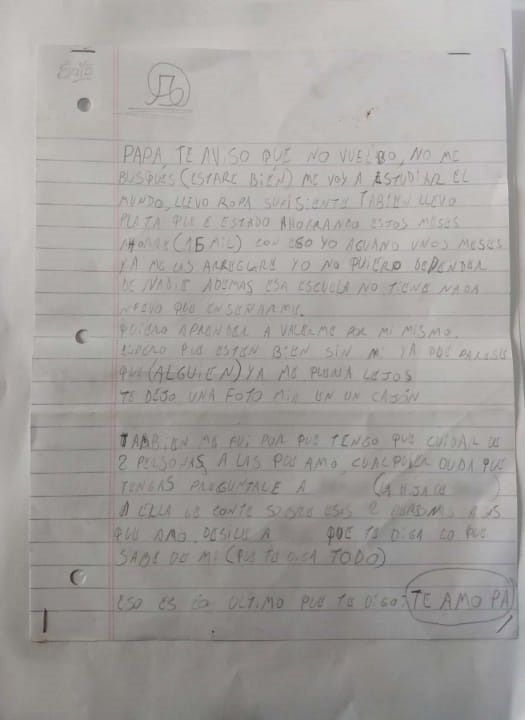 PAPA, TE AVISO QUE NO VUELBO, NO ME
BUSQUES (ESTARE BIEN) ME VOY A ESTUDIAR EL
MUNDO, LLEVO ROPA SUFISIENTE TABIEN LLEVO
PLATA QUE E ESTADO AHORRANDO ESTOS MESES
AHORRE (15 MIL) CON ESO YO AGUANO UNOS MESES
YA ME LAS ARREGLARE YO NO QUIERO DEPENDER
DE NADIE ADEMAS ESA ESCUELA NO TIENE NADA
NUEVO QUE ENSEÑARME.
QUIERO APRENDER A VALERME POR MI MISMO.
ESPERO QUE ESTEN BIEN SIN MI YA QUE PARESE
QUE (ALGUIEN) YA ME QUERIA LEJOS
TE DEJO UNA FOTO MIA EN UN CAJÓN
TAMBIEN ME FUI POR QUE TENGO QUE CUIDAR DE
2 PERSONAS A LAS QUE AMO, CUALQUIER DUDA QUE
TENGAS PREGUNTALE A (LA HIJA DE )
A ELLA LE CONTE SOBRE ESAS 2 PERSONAS A AS
QUE AMO, DESILE A QUE TE DIGA LO QUE
SABE DE MI (QUE TE DIGA TODO)
ESO ES LO ULTIMO QUE TE DIGO: TE AMO PA